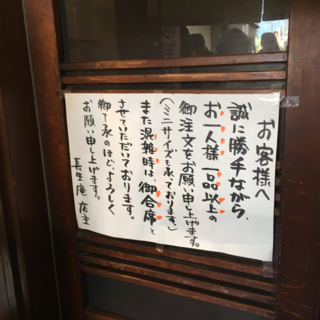 お客様へ
誠に勝手ながら、
お一人様 一品以上の
御注文をお願い申し上げます。
（ミニサイズも承っております）
また混雑時は御合席と
させていただいております。
御了承のほどよろしく
お願い申し上げます。
長生庵 店主